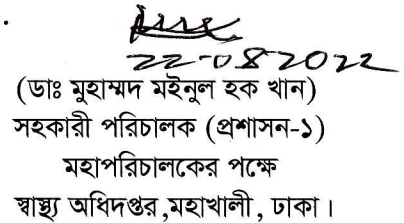 22-08-2022
(ডাঃ মুহাম্মদ মইনুল হক খান)
সহকারী পরিচালক (প্রশাসন-১)
মহাপরিচালকের পক্ষে
স্বাস্থ্য অধিদপ্তর ,মহাখালী , ঢাকা ।